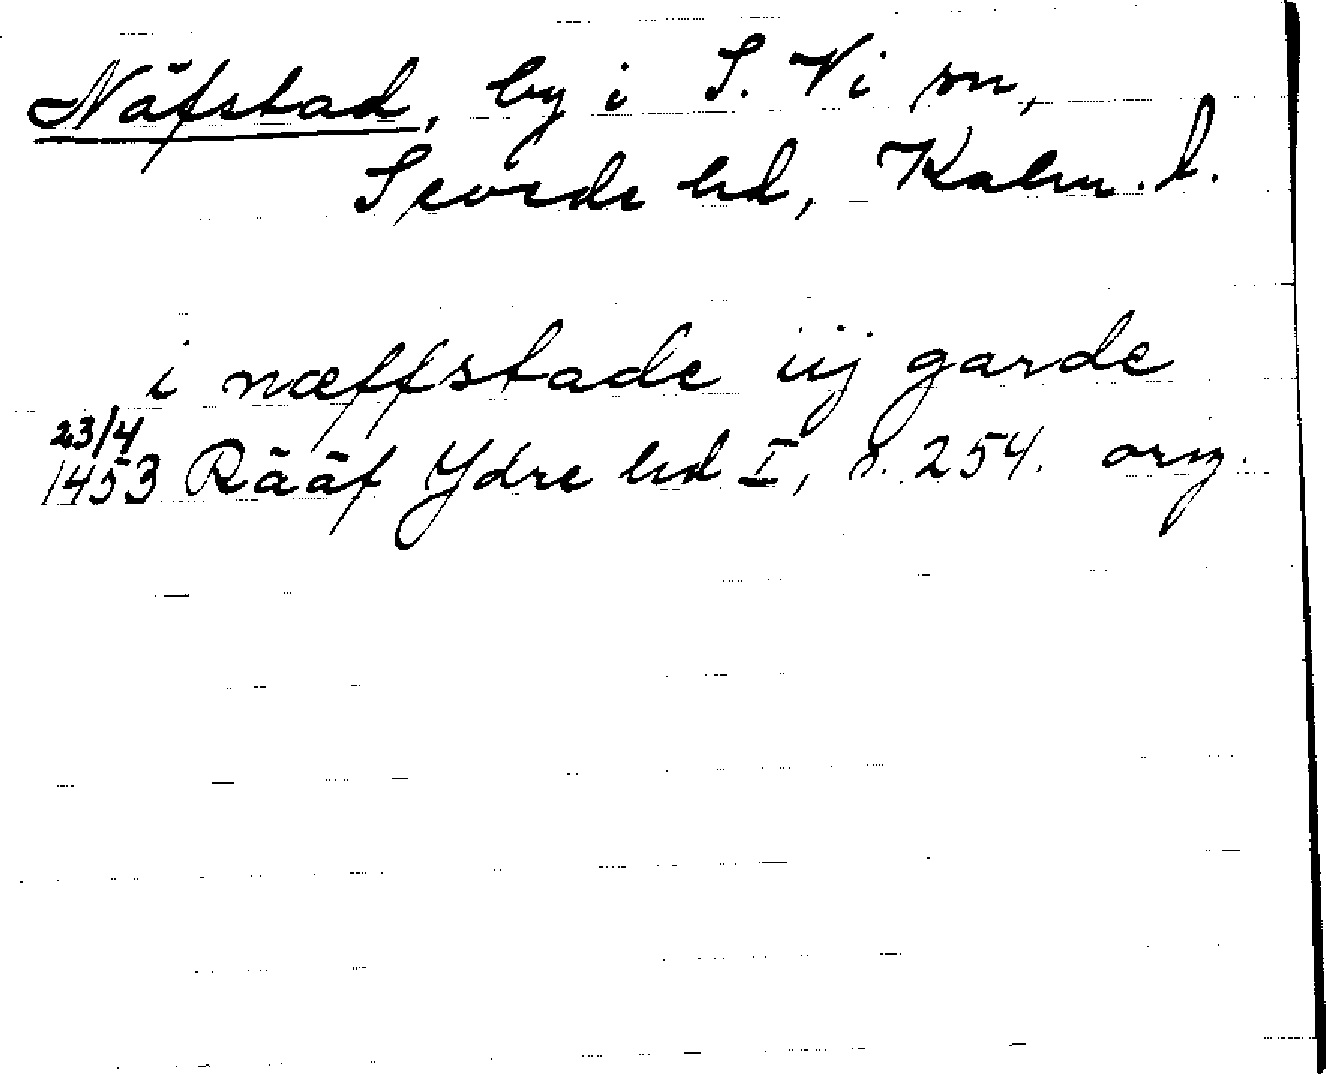 Näfstad, by i S. Vi sn,
Sevede hd, Kalm. l.
i næffstade iij garde
23/4
1453 Rääf Ydre hd I, s. 254. orig.